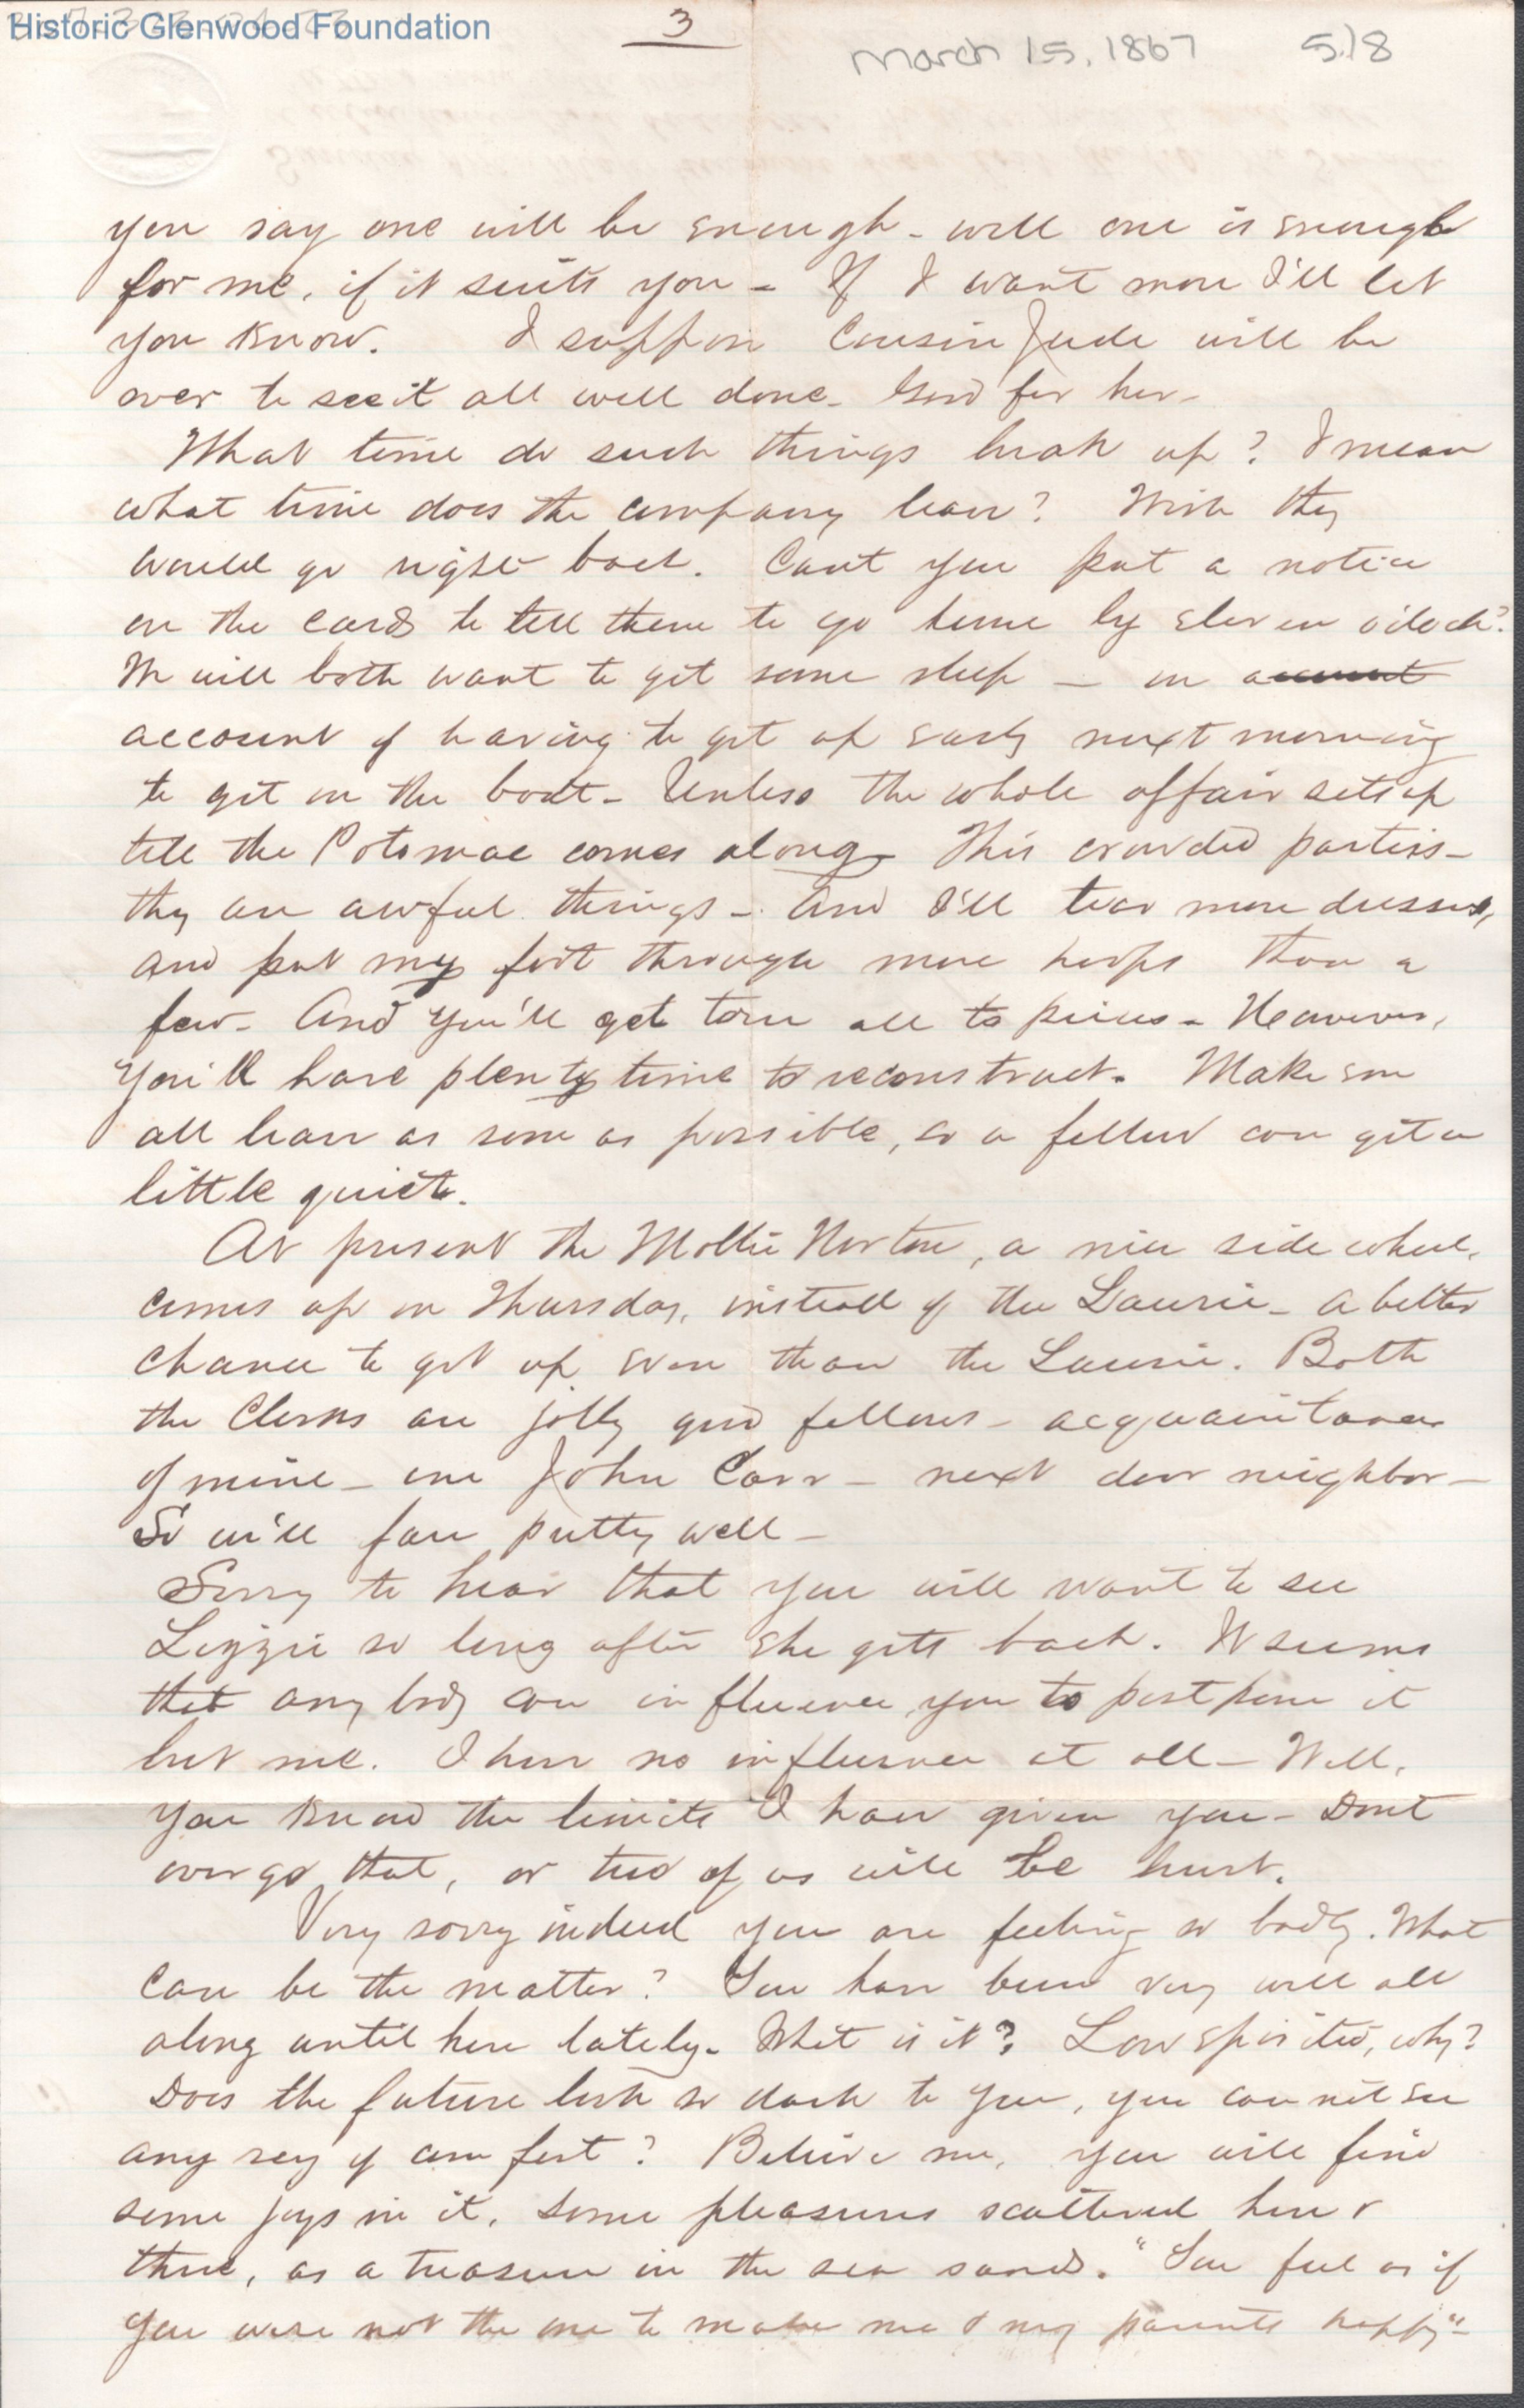 Historic Glenwood Foundation
3
March 15, 1867 518
you say one will be enough - well one is enough
for me, if it suits you - If I want more I'll let
you know. I suppose Cousin Jude will be
over to see it all well done - Good for her -
What time do such things break up? I mean
what time does the company leave? Wish they
would go right back. Cant you put a notice
on the cards to tell them to go home by eleven o'clock?
We will both want to get some sleep - on account
account of having to get up early next morning
to get on the boat - Unless the whole affair sets up
till the Potomac comes along - This crowded parties -
they are awful things - And I'll tear more dresses,
and put my foot through more hoops than a
few - And you'll get torn all to pieces - However,
You'll have plenty time to reconstruct. Make em
all leave as soon as possible, so a fellow can get a
little quiet.
At present the Mollie Norton, a nice side wheel,
comes up on Thursday, instead of the Laurie - a better
chance to get up even than the Laurie. Both
the Clerks are jolly good fellows - acquaintances
of mine - one John Carr - next door neighbor -
So we'll fare pretty well -
Sorry to hear that you will want to see
Lizzie so long after she gets back. It seems
that any body can influence you to postpone it
but me. I have no influence at all - Well,
you know the limits I have given you - Dont
overgo that, or two of us will be hurt.
Very sorry indeed you are feeling so badly. What
can be the matter? You have been very well all
along until here lately - What is it? Low spirited, why?
Does the future look so dark to you, you can not see
any ray of comfort? Believe me, you will find
some joys in it, some pleasures scattered here &
there, as a treasure in the sea sands. "You feel as if
you were not the one to make me & my parents happy" -